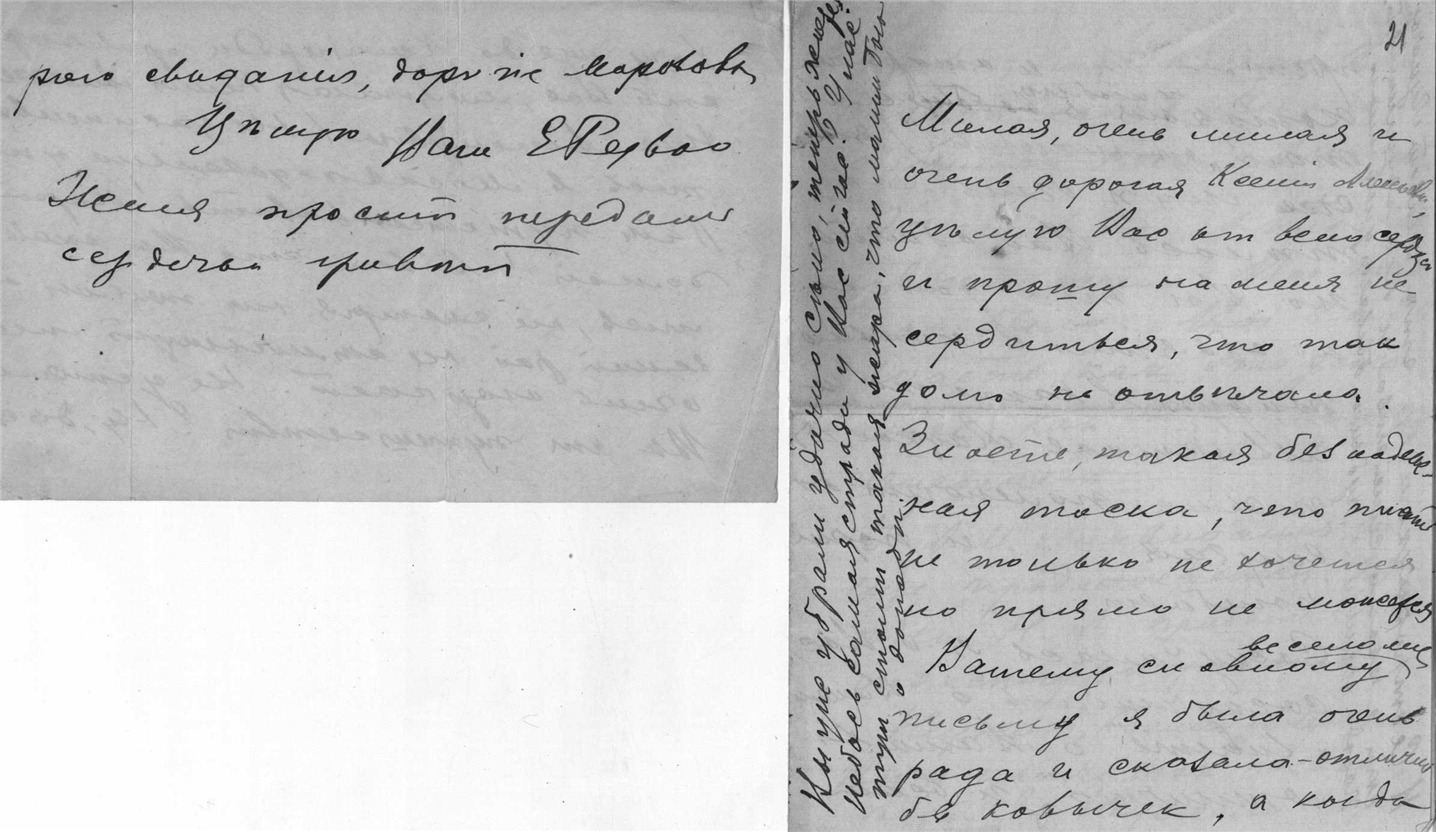 раго свиданія, дорогіе Марковы
Цѣлую Ваша Е
Женя просит передать
сердечный привѣтъ
21
Милая, очень милая и
очень дорогая Ксенія
цѣлую Вас от всего сердца
и прошу на меня не
сердиться, что так
долго не отвѣчала.
Знаете, такая безнадеж-
ная тоска, что писать
не только не хочется
но прямо не можется
веселому
Вашему славному
письму я была очень
рада и сказала-отлично
без ковычек, а когда
убрали удачно сѣно, теперь
Небось самая страда у Вас сейчас. У нас
стоит такая жара, что